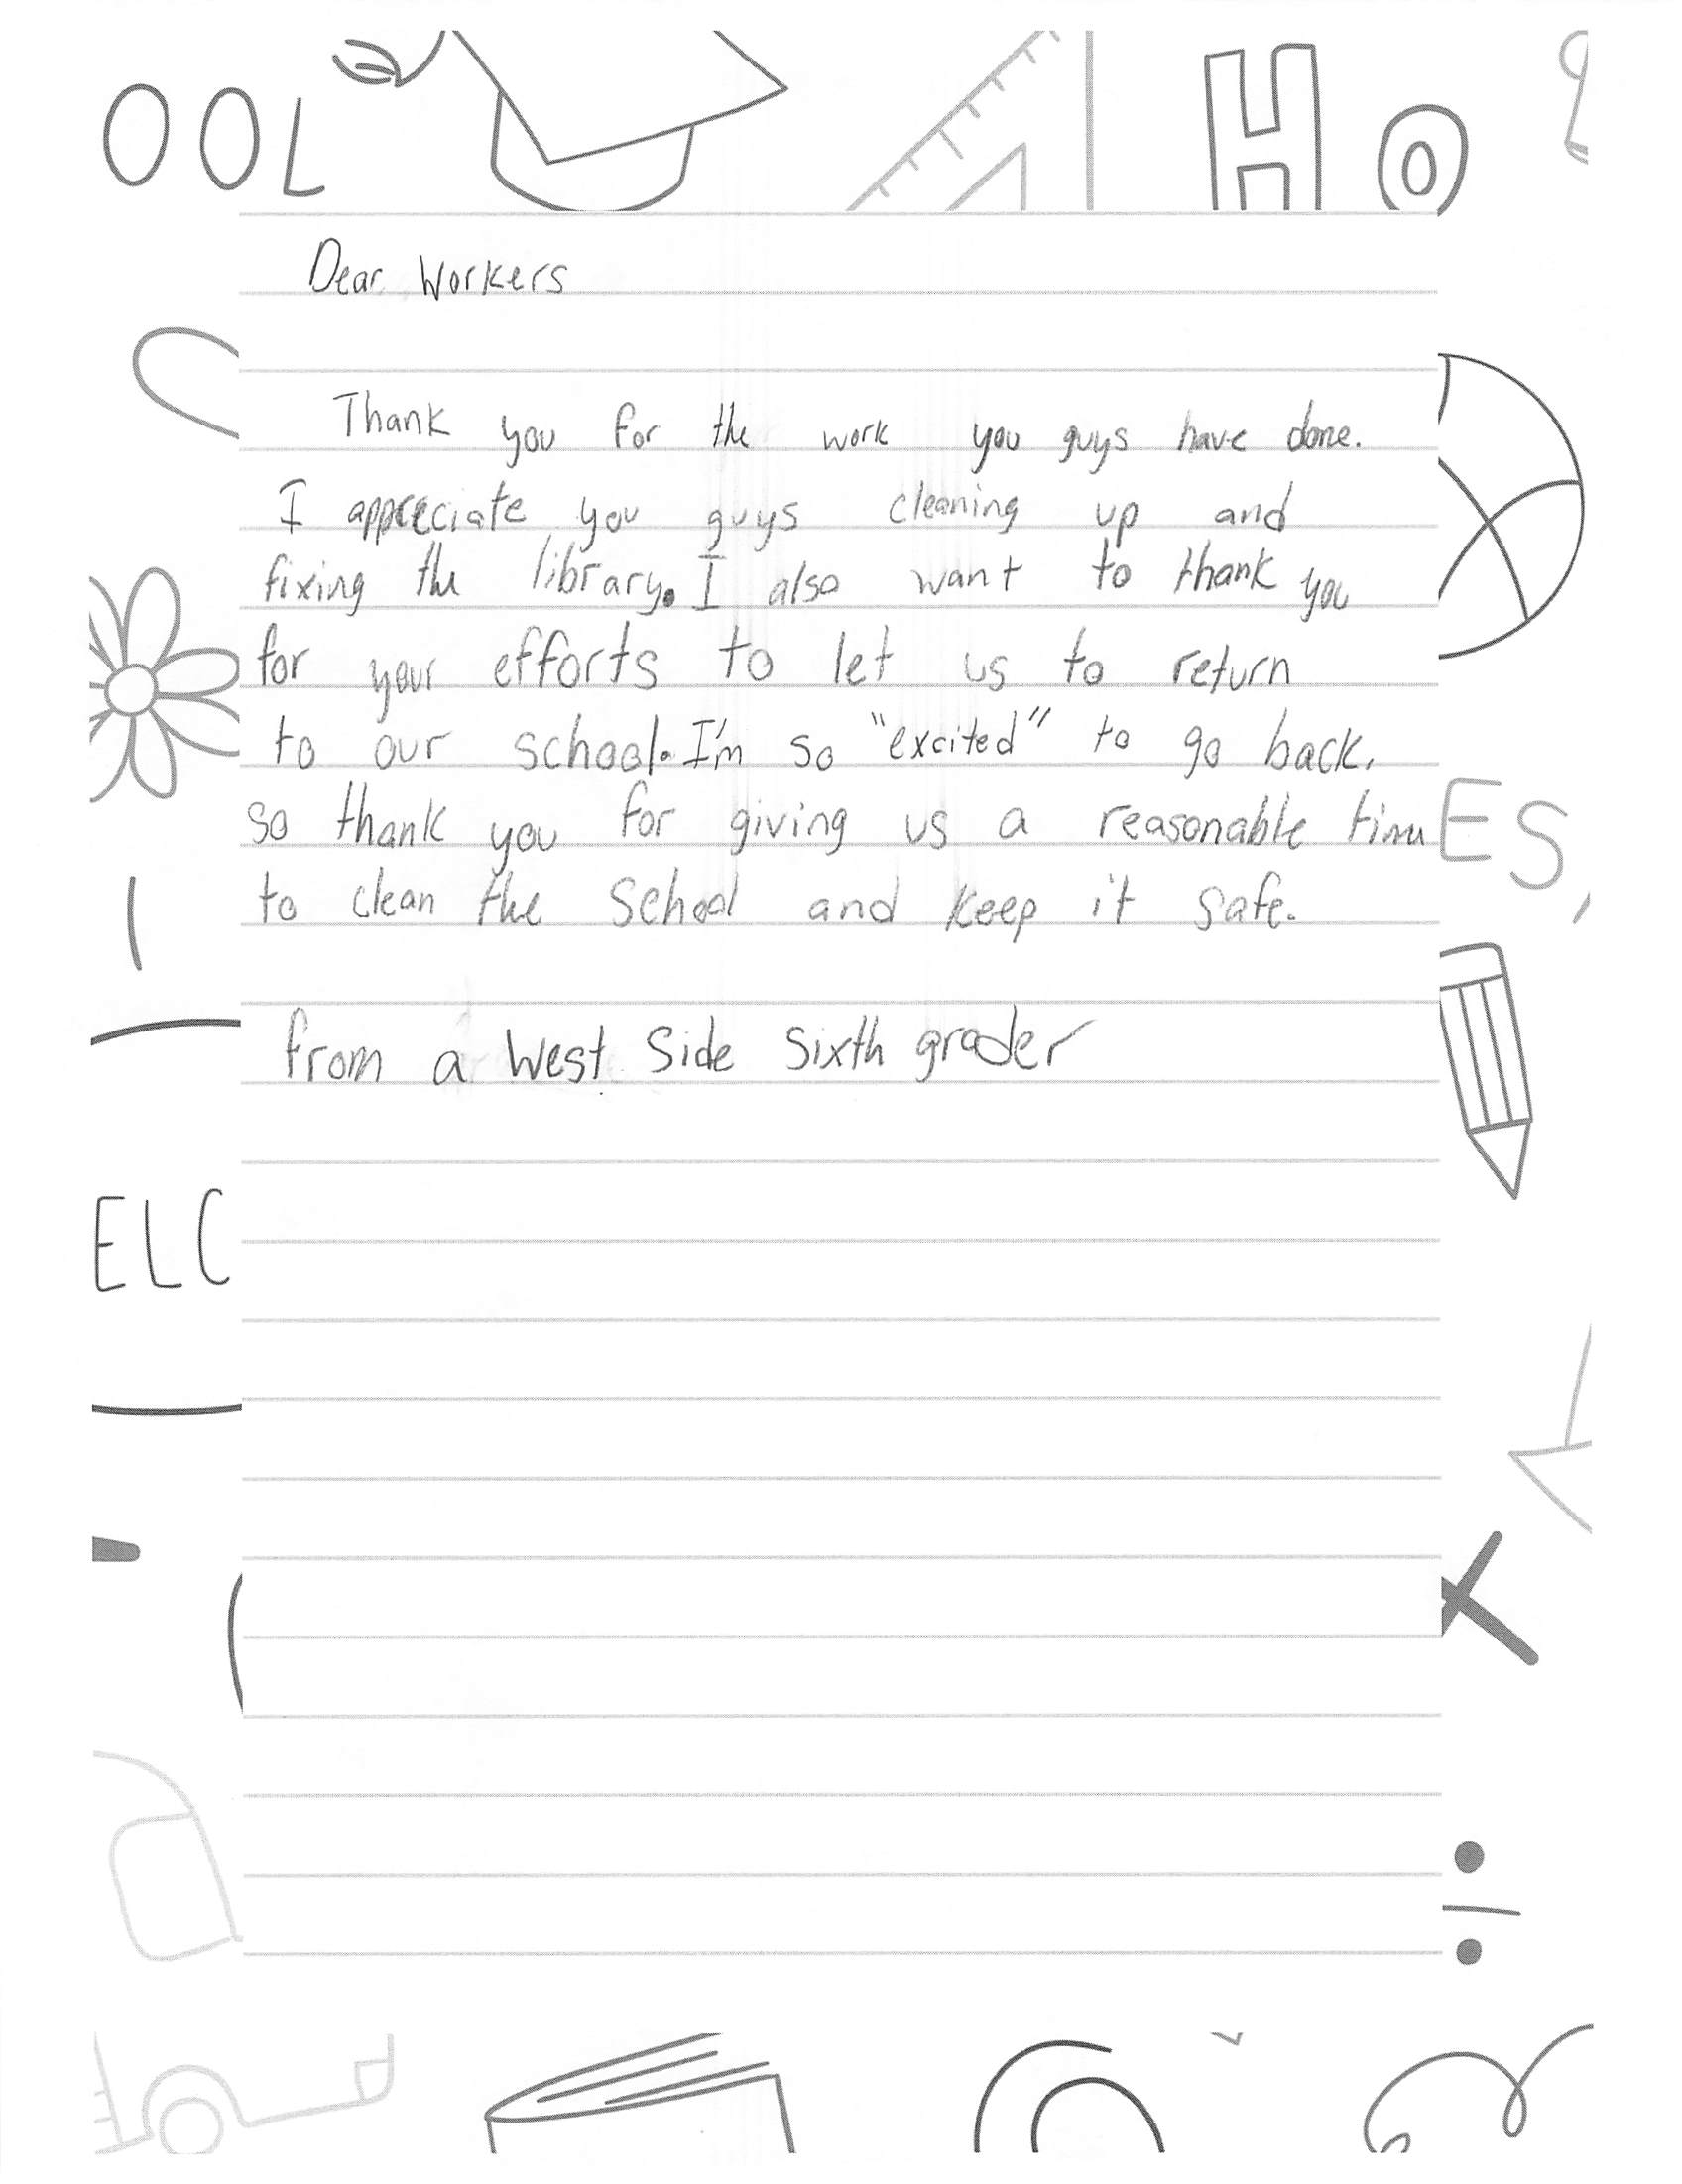 OOL
HO
Dear Workers
Thank you for the work you guys have done.
I appreciate you guys cleaning up and
fixing the library. I also want to thank you
for your efforts to let us to return
to our school. I'm so "excited" to go back.
so thank you for giving us a reasonable time
ES,
to clean the school and keep it safe.
from a West Side Sixth grader
ELC